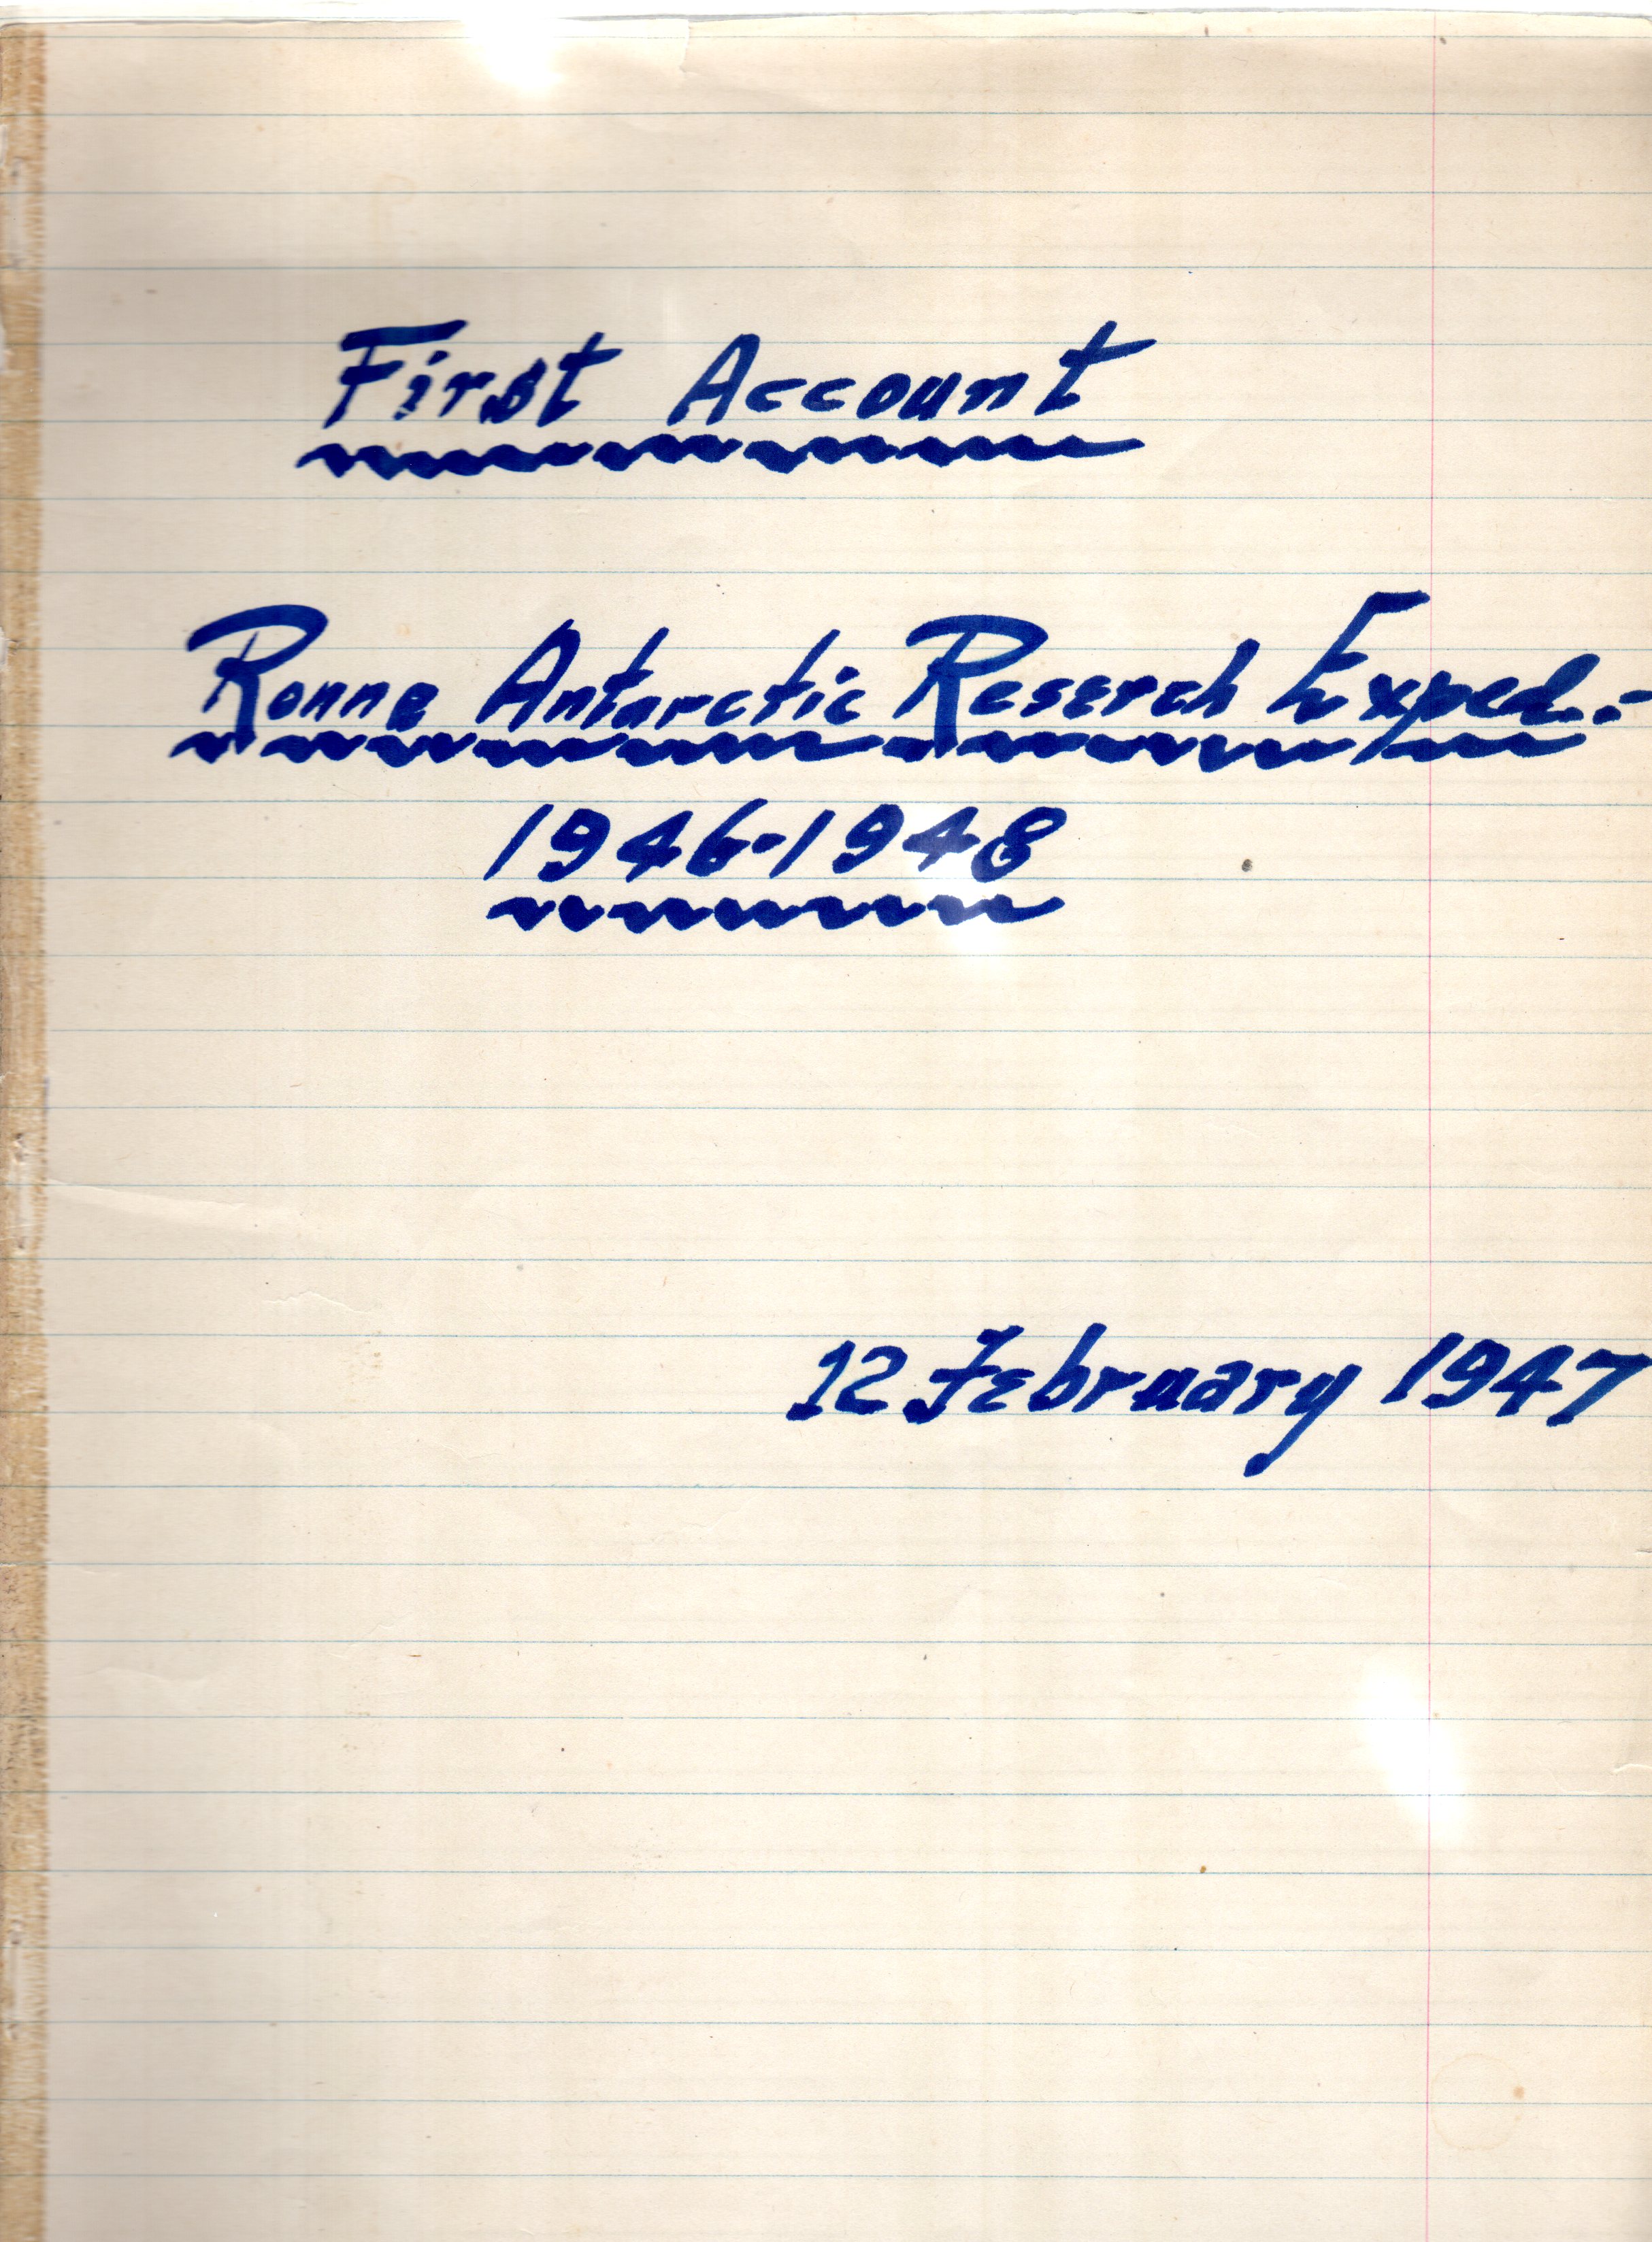 First Account
Ronne Antarctic Reserch Exped.-
1946-1948
12 February 1947